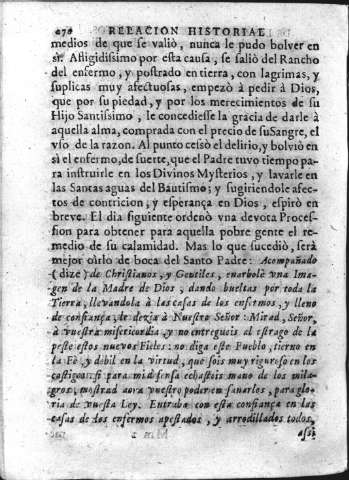 270 RELACION HISTORIAL
medios de que se valiò, nunca le pudo bolver en
si. Afligidissimo por esta causa, se saliò del Rancho
del enfermo, y postrado en tierra, con lagrimas, y
suplicas muy afectuosas, empezò à pedir à Dios,
que por su piedad, y por los merecimientos de su
Hijo Santissimo, le concediesse la gracia de darle à
aquella alma, comprada con el precio de suSangre, el
vso de la razon. Al punto cessò el delirio, y bolviò en
sì el enfermo, de suerte, que el Padre tuvo tiempo pa-
ra instruirle en los Divinos Mysterios, y lavarle en
las Santas aguas del Bautismo; y sugiriendole afec-
tos de contricion, y esperança en Dios, espirò en
breve. El dia siguiente ordenò vna devota Proces-
sion para obtener para aquella pobre gente el re-
medio de su calamidad. Mas lo que sucediò, serà
mejor oìrlo de boca del Santo Padre: Acompañado
(dize) de Christianos, y Gentiles, enarbolè vna Ima-
gen de la Madre de Dios, dando bueltas por toda la
Tierra, llevandola à las casas de los enfermos, y lleno
de confiança, le dezia à Nuestro Señor: Mirad, Señor,
à vuestra misericordia, y no entregueis al estrago de la
peste estos nuevos Fieles: no diga este Pueblo, tierno en
la Fè, y debil en la virtud, que sois muy riguroso en los
castigos: si para mi defensa echasteis mano de los mila-
gros, mostrad aora vuestro poder en sanarles, para glo-
ria de vuestra Ley. Entraba con esta confiança en las
casas de los enfermos apestados, y arrodillados todos,
assi